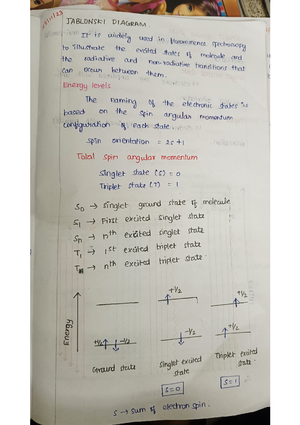 JABLONSKI DIAGRAM
It is widely used in fluorescence spectroscopy
to illustrate the excited states of molecule and
the radiative and non-radiative transitions that
can occur between them.
Energy levels
The naming of the electronic states is
based on the spin angular momentum
configuration of each state
Spin orientation = 2s+1
Total spin angular momentum
Singlet state (S) = 0
Triplet state (T) = 1
S₀ → Singlet ground state of molecule
S₁ → First excited singlet state
Sn → nth excited singlet state
T₁ → 1st excited triplet state
Tn → nth excited triplet state
+1/2 +1/2
Energy
+1/2 -1/2 -1/2 +1/2
Ground state Singlet excited state Triplet excited state
S=0 S=1
S → Sum of electron spin.